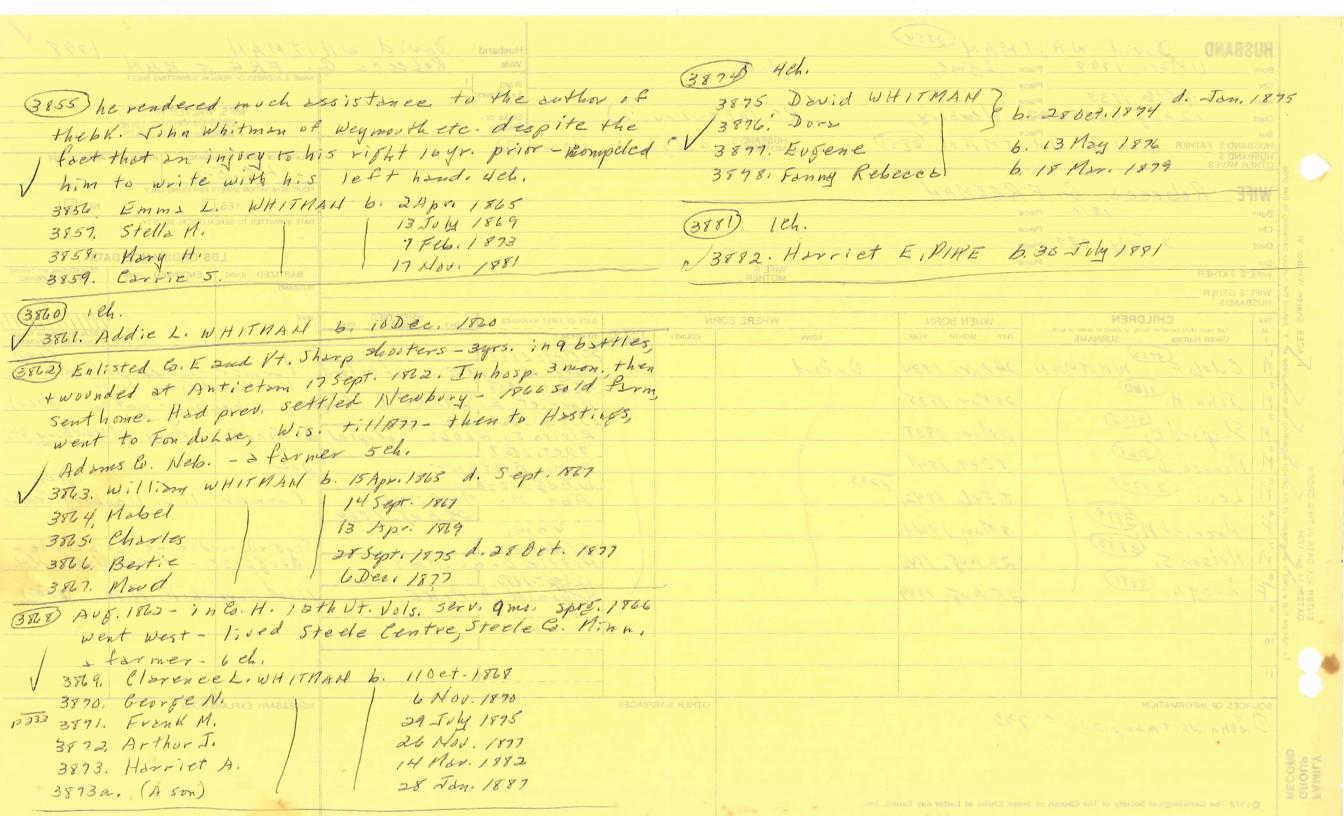 (3855) he rendered much assistance to the author of
the bk. John Whitman of Weymouth etc. despite the
fact that an injury to his right 16 yr. prior - compeled
him to write with his left hand. 4ch.
3856. Emma L. WHITMAN b. 2 Apr. 1865
3857. Stella M. 13 July 1869
3858. Mary H. 7 Feb. 1873
3859. Carrie S. 17 Nov. 1881
(3860) 1ch.
3861. Addie L. WHITMAN b. 10 Dec. 1860
(3862) Enlisted Co. E 2nd Vt. Sharp shooters - 3yrs. in 9 battles,
+ wounded at Antietam 17 Sept. 1862. In hosp. 3 mon. then
sent home. Had prev. settled Newbury - 1866 sold farm,
went to Fon duLac, Wis. till 1877 - then to Hastings,
Adams Co. Neb. - a farmer 5ch.
3863. William WHITMAN b. 15 Apr. 1865 d. Sept. 1867
3864. Mabel 14 Sept. 1867
3865. Charles 13 Apr. 1869
3866. Bertie 28 Sept. 1875 d. 28 Oct. 1877
3867. Maud 6 Dec. 1877
(3868) Aug. 1862 - in Co. H. 12th Vt. Vols. serv. 9 mo. sprg. 1866
went west - lived Steele Centre, Steele Co. Minn.
a farmer - 6 ch.
3869. Clarence L. WHITMAN b. 11 Oct. 1868
3870. George N. 6 Nov. 1870
p 233 3871. Frank M. 29 July 1875
3872. Arthur J. 26 Nov. 1877
3873. Harriet A. 14 Mar. 1882
3873a. (A son) 28 Jan. 1887
(3874) 4ch.
3875 David WHITMAN d. Jan. 1875
3876. Dora b. 28 Oct. 1874
3877. Eugene b. 13 May 1876
3878. Fanny Rebecca b. 18 Mar. 1879
(3881) 1ch.
3882. Harriet E. PIKE b. 30 July 1881